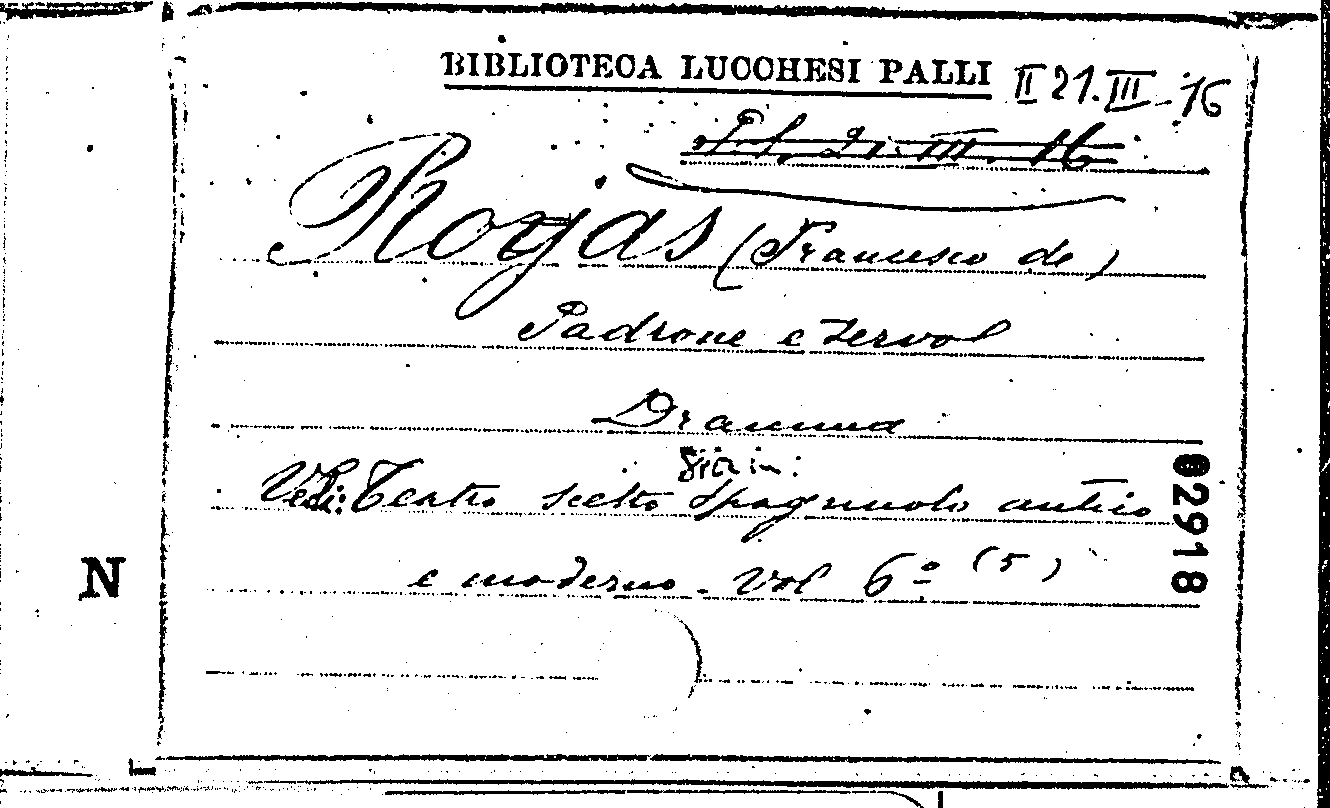 BIBLIOTECA LUCCHESI PALLI II 21. III - 16
P.P. 21. III. 16
Rojas (Francisco de)
Padrone e Servo
Dramma
Sta in:
Vedi: Teatro scelto Spagnuolo antico
e moderno. Vol 6º (5)
02918
N